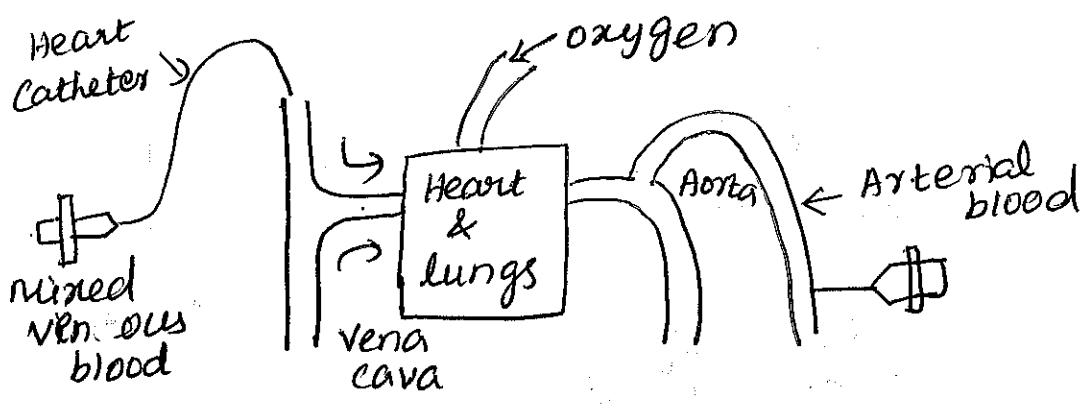 Heart
Catheter
oxygen
Heart
&
lungs
Aorta
Arterial
blood
Mixed
Ven ous
blood
Vena
cava